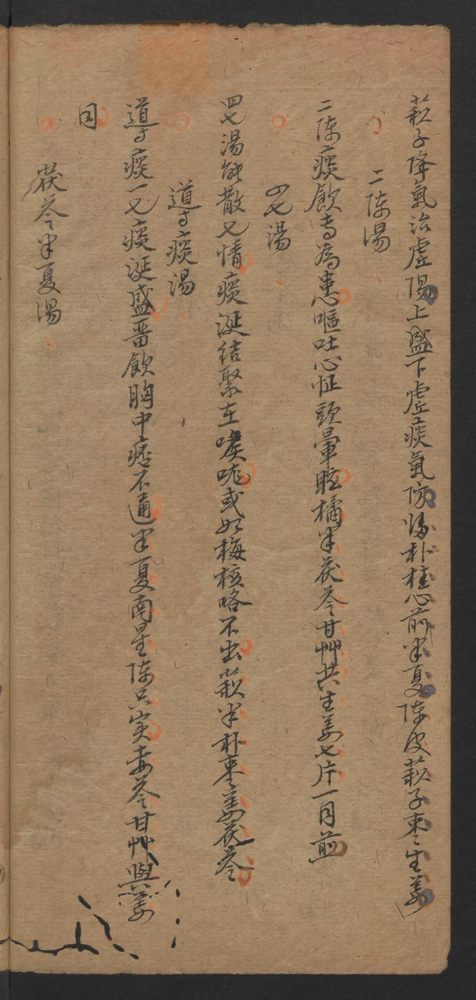 苏子降氣治虛陽上盛下虛痰氣防归朴桂心前半夏陈皮苏子枣生姜
二陈湯
二陈痰飲专為患嘔吐心怔頭暈眩橘半茯苓甘艸共生姜七片一同煎
四七湯
四七湯能散七情痰涎结聚在喉咙或如梅核咯不出蘇半朴枣姜茯苓
導痰湯
導痰一七痰涎盛畱飲胸中痞不通半夏南星陈只实赤苓甘艸與姜
同
茯苓半夏湯